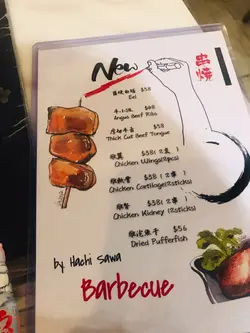 New
串燒
$58
Eel
牛小排 $68
Angus Beef Ribs
厚切牛舌 $58
Thick Cut Beef Tongue
雞翼 $38(2隻)
Chicken Wings(2pcs)
雞軟骨 $38(2串)
Chicken Cartilage(2sticks)
雞腎 $38(2串)
Chicken Kidney (2sticks)
雞泡魚干 $56
Dried Pufferfish
by Hachi Sawa
Barbecue